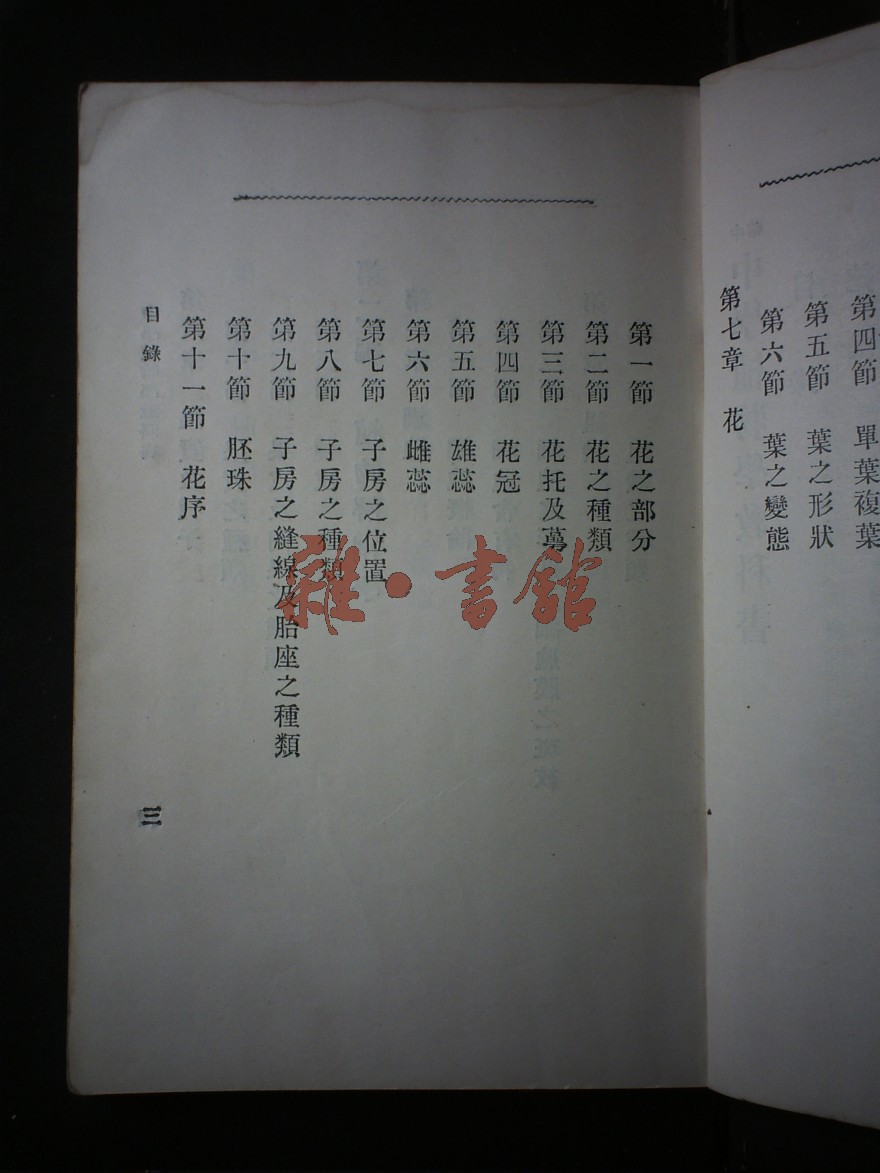 第四節 單葉複葉
第五節 葉之形狀
第六節 葉之變態
第七章 花
第一節 花之部分
第二節 花之種類
第三節 花托及萼
第四節 花冠
第五節 雄蕊
第六節 雌蕊
第七節 子房之位置
第八節 子房之種類
第九節 子房之縫線及胎座之種類
第十節 胚珠
第十一節 花序
目錄
三
雜·書館